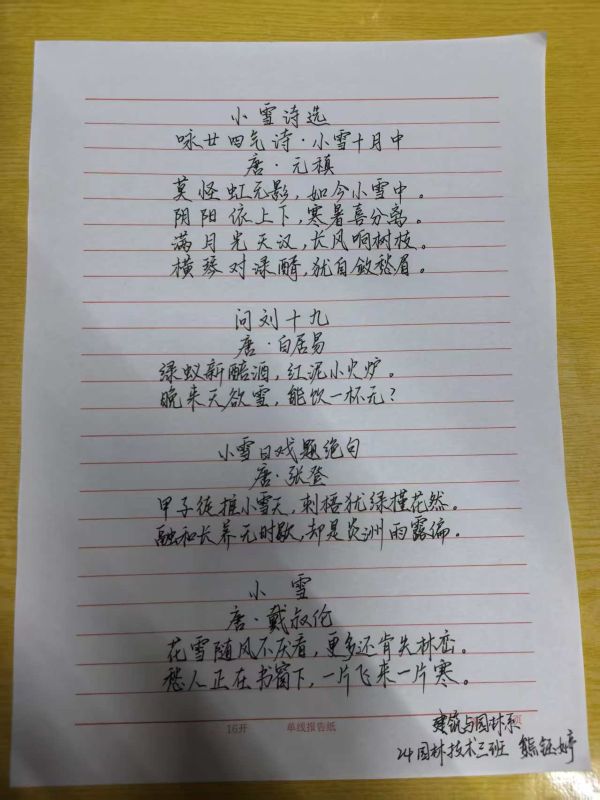 小雪诗选
咏廿四气诗·小雪十月中
唐·元稹
莫怪虹无影,如今小雪中。
阴阳依上下,寒暑喜分离。
满月光天汉,长风响树枝。
横琴对渌醑,犹自敛愁眉。
问刘十九
唐·白居易
绿蚁新醅酒,红泥小火炉。
晚来天欲雪,能饮一杯无?
小雪日戏题绝句
唐·张登
甲子徒推小雪天,刺梧犹绿槿花然。
融和长养无时歇,却是炎洲雨露偏。
小 雪
唐·戴叔伦
花雪随风不厌看,更多还肯失林峦。
愁人正在书窗下,一片飞来一片寒。
16开 单线报告纸
建筑与园林系
24园林技术三班 熊钰婷